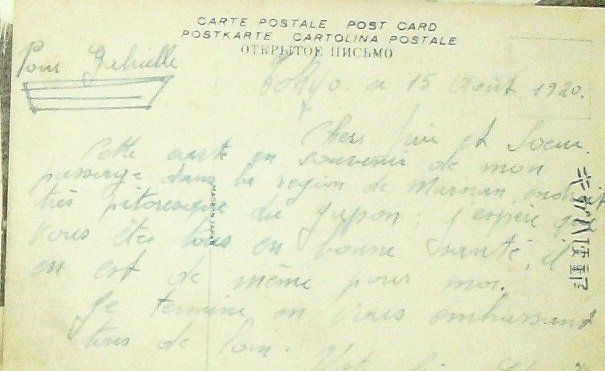 CARTE POSTALE POST CARD
POSTKARTE CARTOLINA POSTALE
ОТКРЫТОЕ ПИСЬМО
Pour
Tokyo a 15 Août 1920.
et Soeur
Cette carte en souvenir de mon
passage dans la région de Muroran, endroit
très pitoresque du Japon. j'espère que
vous êtes tous en bonne santé, il
en est de même pour moi.
Je termine en vous embrassant
tous de loin.
MADE IN JAPAN